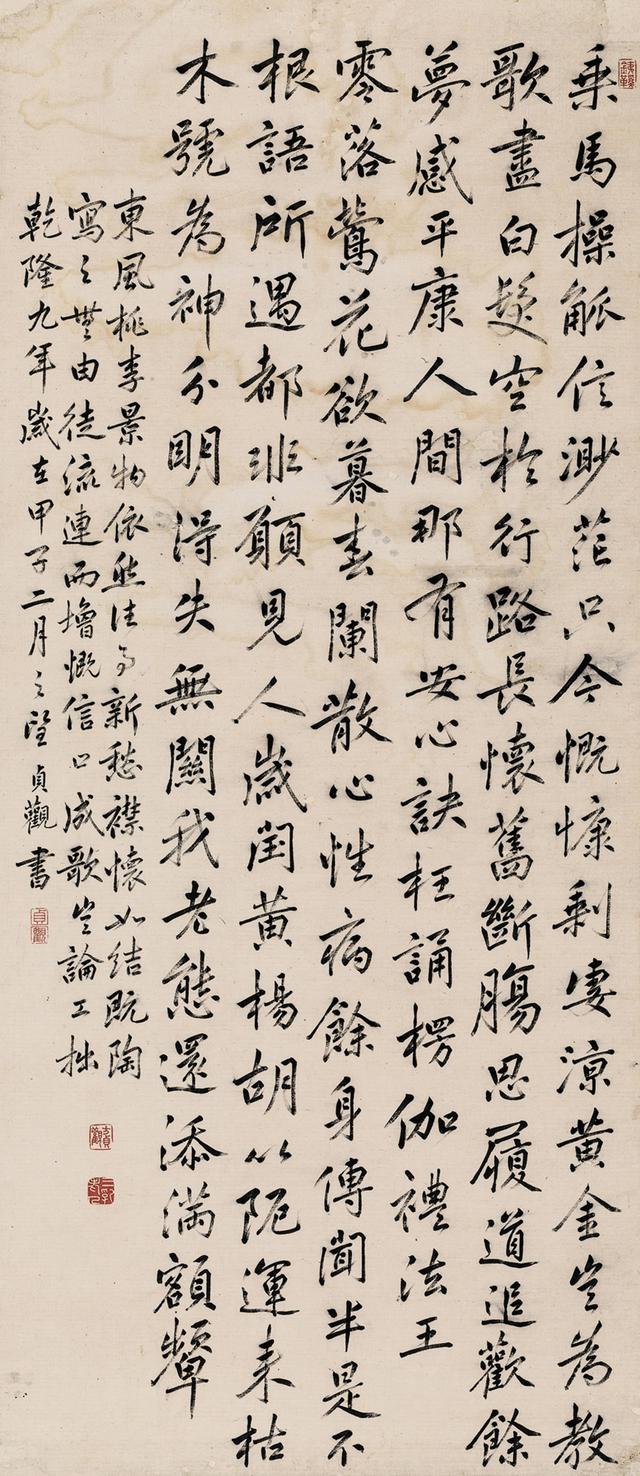 乘馬操觚信渺茫只今慨慷剩淒涼黃金豈為教
歌盡白髮空於行路長懷舊斷腸思履道追歡餘
夢感平康人間那有安心訣枉誦楞伽禮法王
零落鶯花欲暮春闌散心性病餘身傳聞半是不
根語所遇都非願見人歲閏黃楊胡以阨運來枯
木號為神分明得失無關我老態還添滿額顰
東風桃李景物依然往事新愁襟懷如結既陶
寫之無由徒流連而增慨信口成歌豈論工拙
乾隆九年歲在甲子二月之望貞觀書
貞觀